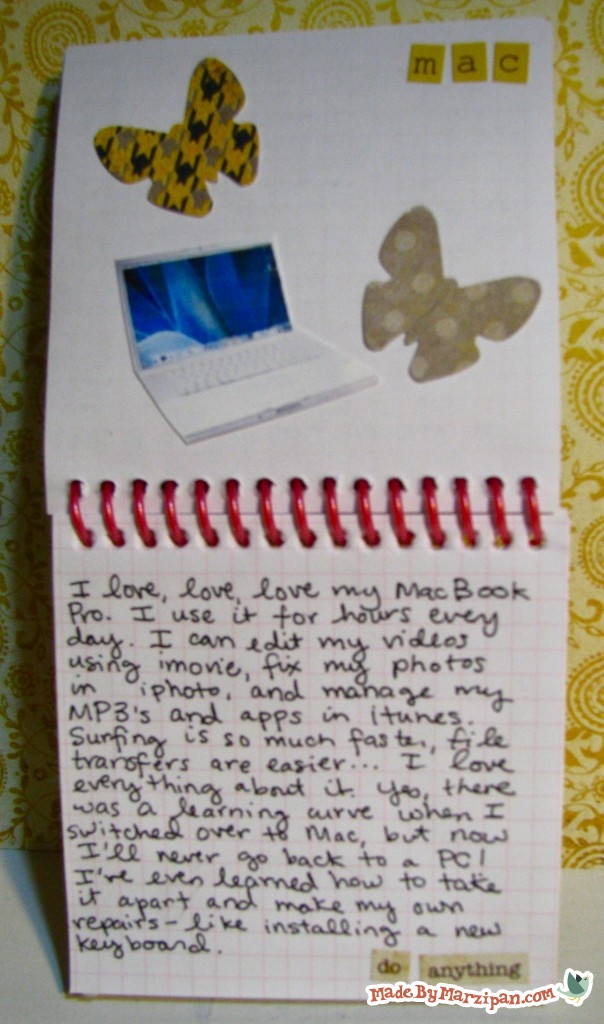 mac
I love, love, love my MacBook
Pro. I use it for hours every
day. I can edit my videos
using imovie, fix my photos
in iphoto, and manage my
MP3's and apps in itunes.
Surfing is so much faster, file
transfers are easier... I love
everything about it. Yes, there
was a learning curve when I
switched over to Mac, but now
I'll never go back to a PC!
I've even learned how to take
it apart and make my own
repairs - like installing a new
keyboard.
do anything
MadeByMarzipan.com